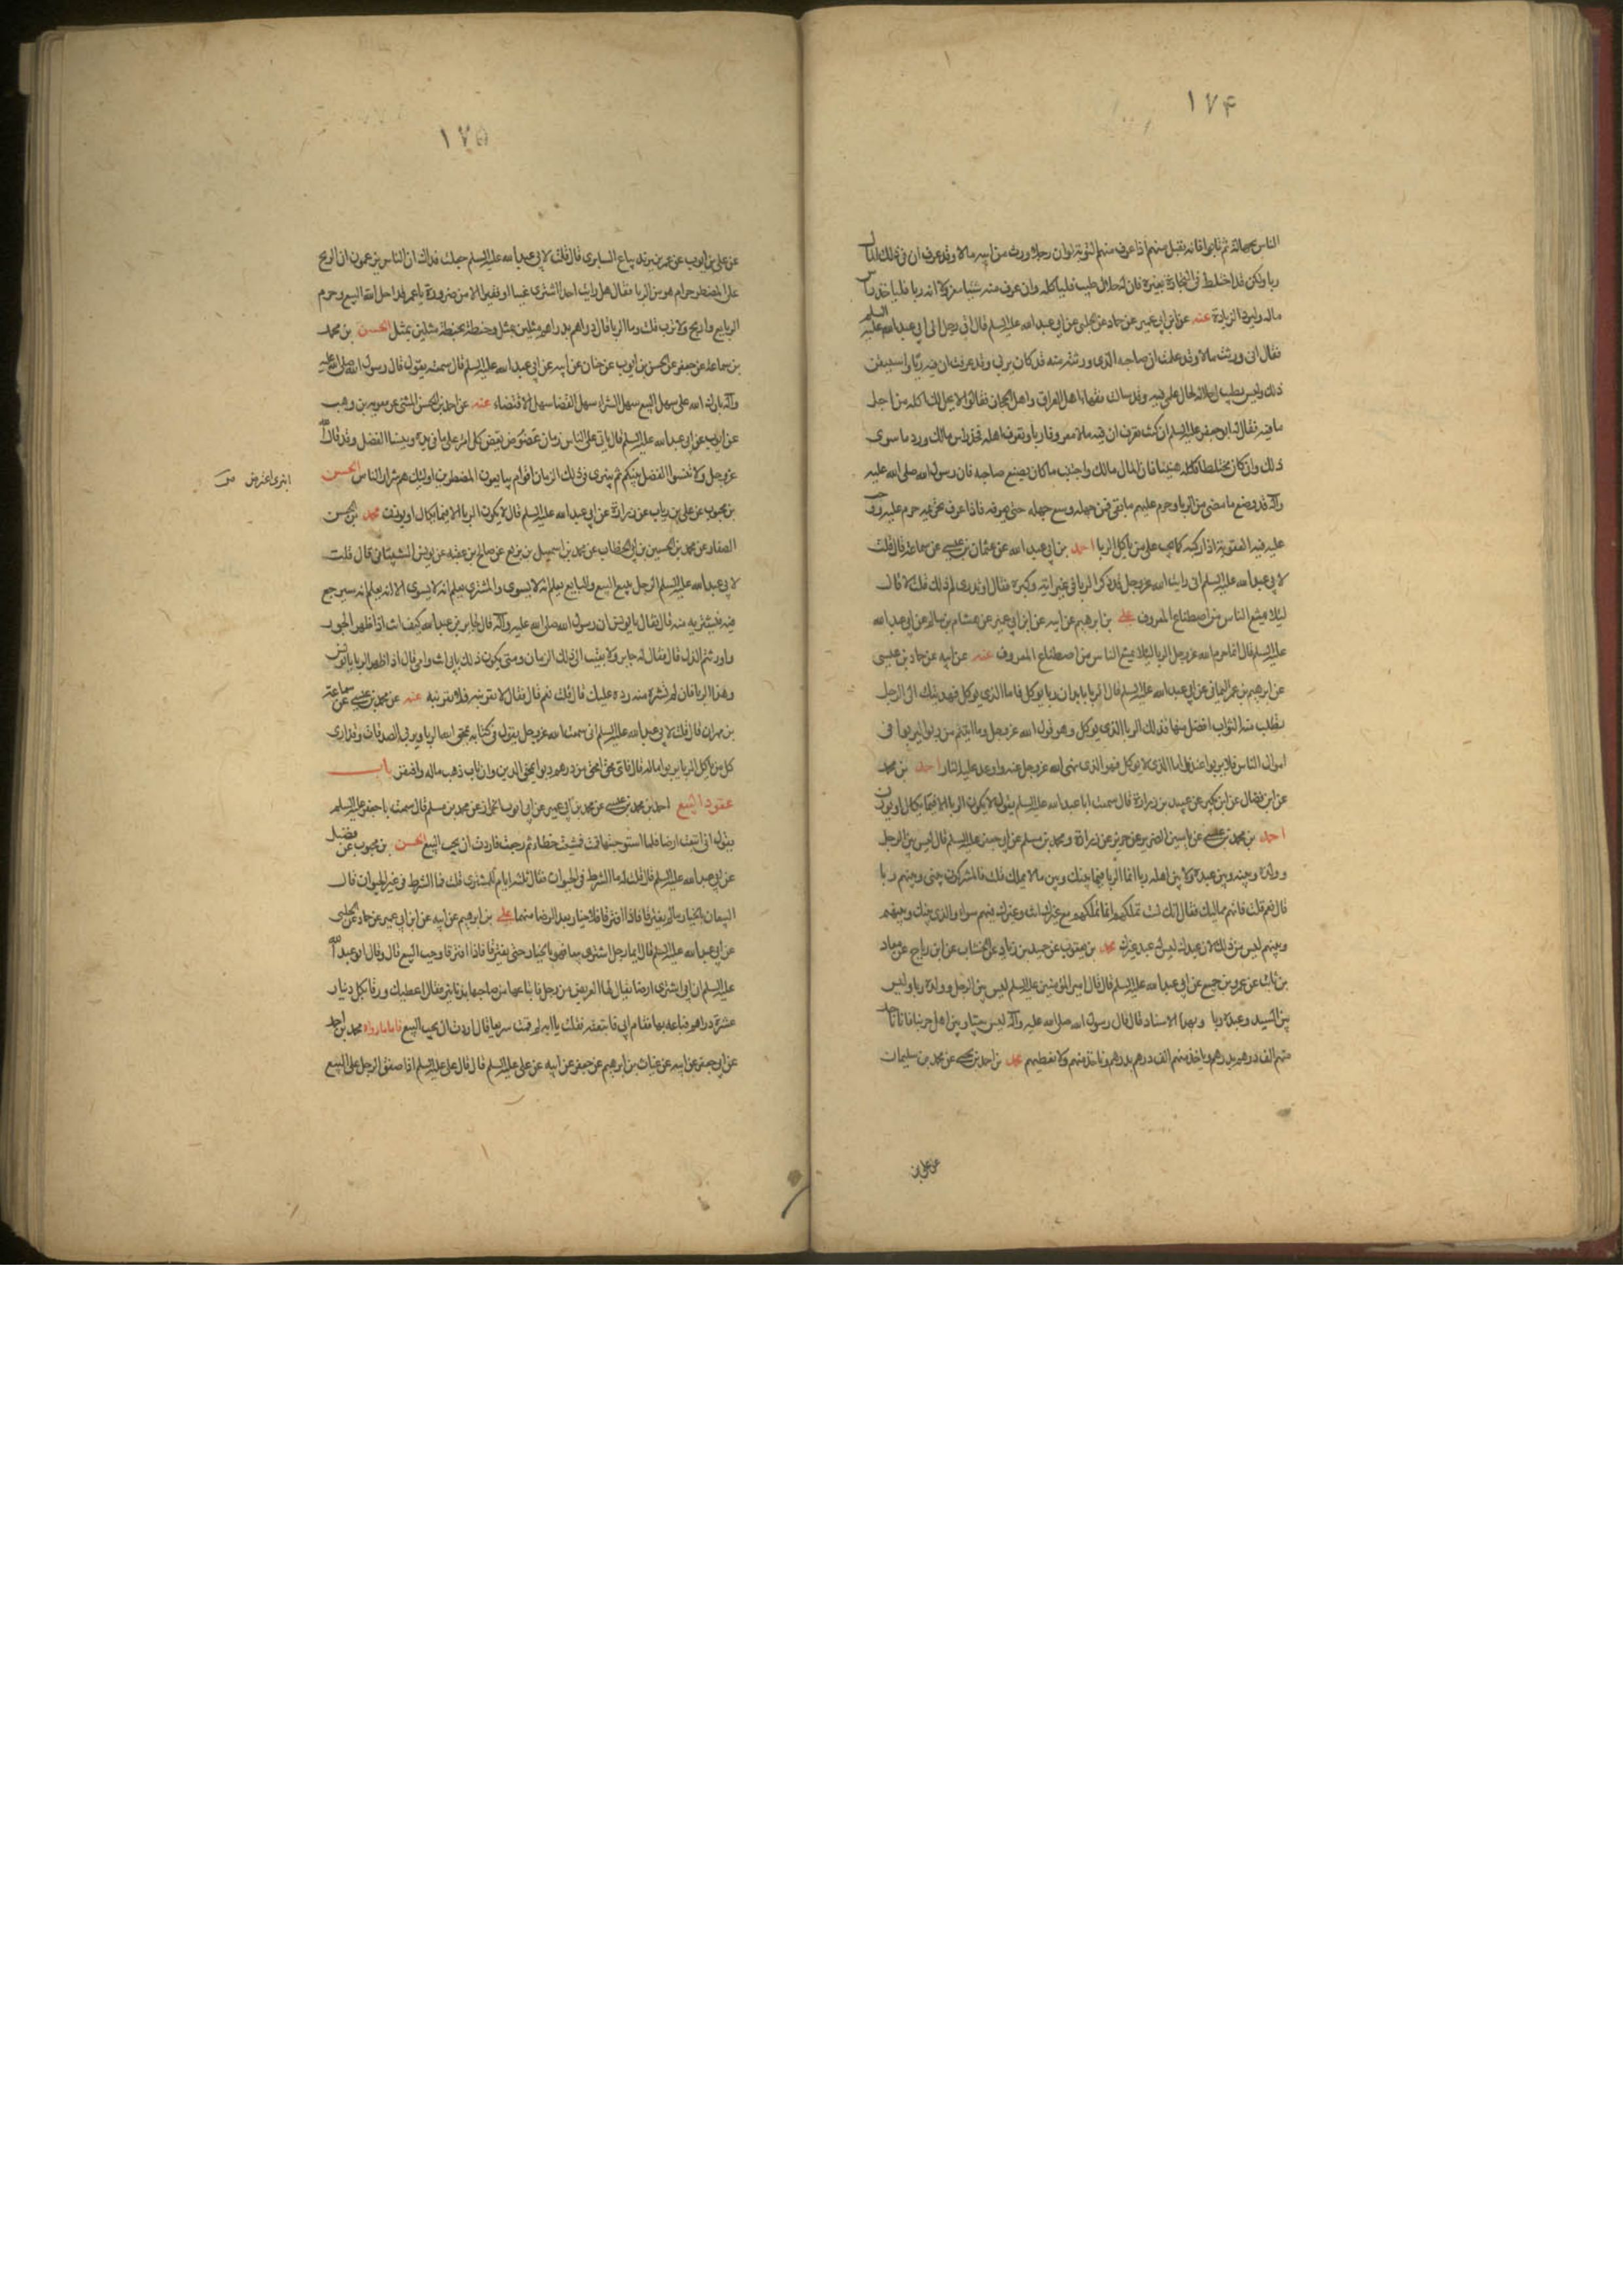 ١٧۴
الناس بجهالة ثم تابوا فانه يقبل منهم اذا عرف منهم التوبة لوان رجلا ورث من ابيه مالا وقد عرف ان فى ذلك المال
ربا ولكن قد اختلط فى التجارة بغيره فان له حلال طيب فلياكله وان عرف منه شيئا معزولا انه ربا فلياخذ راس
ماله وليرد الزيادة عنه عن ابن ابى عمير عن حماد عن الحلبى عن ابى عبد الله عليه السلم قال اتى رجل الى ابى عبد الله عليه السلم
فقال انى ورثت مالا وقد علمت ان صاحبه الذى ورثته منه قد كان يربى وقد عرفت ان فيه ربا واستيقن
ذلك وليس يطيب لى حلاله لحال علمى فيه وقد سالت فقهاء اهل العراق واهل الحجاز فقالوا لا يحل لك اكله من اجل
ما فيه فقال له ابو جعفر عليه السلم ان كنت تعرف ان فيه مالا معروفا ربا وتعرف اهله فخذ راس مالك ورد ما سوى
ذلك وان كان مختلطا فكله هنيئا فان المال مالك واجتنب ما كان يصنع صاحبه فان رسول الله صلى الله عليه
وآله قد وضع ما مضى من الربا وحرم عليهم ما بقى فمن جهله وسع جهله حتى يعرفه فاذا عرف تحريمه حرم عليه ووجب
عليه فيه العقوبة اذا ركبه كما يجب على من ياكل الربا احمد بن ابى عبد الله عن عثمان بن عيسى عن سماعة قال قلت
لابى عبد الله عليه السلم انى رايت الله عز وجل قد ذكر الربا فى غير اية وكبره فقال اوتدرى لم ذلك قلت لا قال
ليلا يمتنع الناس من اصطناع المعروف على بن ابرهيم عن ابيه عن ابن ابى عمير عن هشام بن سالم عن ابى عبد الله
عليه السلم قال انما حرم الله عز وجل الربا ليلا يمتنع الناس من اصطناع المعروف عنه عن ابيه عن حماد بن عيسى
عن ابرهيم بن عمر اليمانى عن ابى عبد الله عليه السلم قال الربا رباءان ربا يوكل فاما الذى يوكل فهديتك الى الرجل
تطلب منه الثواب افضل منها فذلك الربا الذى يوكل وهو قول الله عز وجل وما اتيتم من ربوا ليربوا فى
اموال الناس فلا يربوا عند الله واما الذى لا يوكل فهو الذى نهى الله عز وجل عنه واوعد عليه النار احمد بن محمد
عن ابن فضال عن ابن بكير عن عبيد بن زرارة قال سمعت ابا عبد الله عليه السلم يقول لا يكون الربا الا فيما يكال او يوزن
احمد بن محمد بن عيسى عن ياسين الضرير عن حريز عن زرارة ومحمد بن مسلم عن ابى جعفر عليه السلم قال ليس بين الرجل
وولده وبينه وبين عبده ولا بين اهله ربا انما الربا فيما بينك وبين ما لا تملك قلت فالمشركون بينى وبينهم ربا
قال نعم قلت فانهم مماليك فقال انك لست تملكهم انما تملكهم مع غيرك انت وغيرك فيهم سواء والذى بينك وبينهم
وبينهم ليس من ذلك لان عبدك ليس عبد غيرك محمد بن يعقوب عن حميد بن زياد عن الخشاب عن ابن رباح عن معاذ
بن ثابت عن عمرو بن جميع عن ابى عبد الله عليه السلم قال قال امير المؤمنين عليه السلم ليس بين الرجل وولده ربا وليس
بين السيد وعبده ربا وبهذا الاسناد قال قال رسول الله صلى الله عليه وآله ليس بيننا وبين اهل حربنا ربا ناخذ
منهم الف درهم بدرهم وناخذ منهم الف درهم بدرهم وناخذ منهم ولا نعطيهم محمد بن احمد بن يحيى عن محمد بن سليمان
عن على بن
١٧۵
عن على بن ايوب عن عمر بن يزيد بياع السابرى قال قلت لابى عبد الله عليه السلم جعلت فداك ان الناس يزعمون ان الربح
على المضطر حرام هو من الربا فقال هل رايت احدا اشترى غنيا او فقيرا الا من ضرورة يا عمر قد احل الله البيع وحرم
الربا بع واربح ولا ترب قلت وما الربا قال دراهم بدراهم مثلين بمثل وحنطة بحنطة مثلين بمثل الحسن بن محمد
بن سماعة عن جعفر عن الحسن بن ايوب عن حنان عن ابيه عن ابى عبد الله عليه السلم قال سمعته يقول قال رسول الله صلى الله عليه
وآله بارك الله على سهل البيع سهل الشراء سهل القضا سهل الاقتضاء عنه عن احمد بن الحسن الميثمى عن معوية بن وهب
عن ابى ايوب عن ابى عبد الله عليه السلم قال ياتى على الناس زمان عضوض يعض كل امرء على ما فى يده وينسا الفضل وقد قال الله
عز وجل ولا تنسوا الفضل بينكم ثم ينبرى فى ذلك الزمان اقوام يبايعون المضطرين اولئك هم شرار الناس الحسن
انبرى اعترض ص
بن محبوب عن على بن رياب عن زرارة عن ابى عبد الله عليه السلم قال لا يكون الربا الا فيما يكال او يوزن محمد بن الحسن
الصفار عن محمد بن الحسين بن ابى الخطاب عن محمد بن اسمعيل بن بزيع عن صالح بن عقبة عن يونس الشيبانى قال قلت
لابى عبد الله عليه السلم الرجل يبيع البيع والبايع يعلم انه لا يسوى والمشترى يعلم انه لا يسوى الا انه يعلم انه سيرجع
فيه فيشتريه منه قال فقال يا يونس ان رسول الله صلى الله عليه وآله قال لجابر بن عبد الله كيف انت اذا ظهر الجور
واورثتم الذل قال فقال له جابر لا بقيت الى ذلك الزمان ومتى يكون ذلك بابى انت وامى قال اذا ظهر الربا يا يونس
وهذا الربا فان لم تشتره منه رده عليك قال قلت نعم قال فقال لا تقربنه فلا تقربنه عنه عن محمد بن عيسى عن سماعة
بن مهران قال قلت لابى عبد الله عليه السلم انى سمعت الله عز وجل يقول فى كتابه يمحق الله الربا ويربى الصدقات وقد ارى
كل من ياكل الربا يربوا ماله قال فاى محق امحق من درهم ربوا يمحق الدين وان تاب ذهب ماله وافتقر باب
عقود البيع احمد بن محمد بن عيسى عن محمد بن ابى عمير عن ابى ايوب الخزاز عن محمد بن مسلم قال سمعت ابا جعفر عليه السلم
يقول انى ابتعت ارضا فلما استوجبتها قمت فمشيت خطاء ثم رجعت فاردت ان يجب البيع الحسن بن محبوب عن فضيل
عن ابى عبد الله عليه السلم قال قلت له ما الشرط فى الحيوان فقال ثلثة ايام للمشترى قلت فما الشرط فى غير الحيوان قال
البيعان بالخيار ما لم يفترقا فاذا افترقا فلا خيار بعد الرضا منهما على بن ابرهيم عن ابيه عن ابن ابى عمير عن حماد عن الحلبى
عن ابى عبد الله عليه السلم قال ايما رجل اشترى بيعا فهو بالخيار حتى يفترقا فاذا افترقا وجب البيع قال وقال ابو عبد الله
عليه السلم ان ابى اشترى ارضا يقال لها العريض من رجل فابتاعها من صاحبها بدنانير فقال اعطيك ورقا بكل دينار
عشرة دراهم فباعه بها فقام ابى فاتبعته فقلت يا ابه لم قمت سريعا قال اردت ان يجب البيع فاما ما رواه محمد بن احمد
عن ابى جعفر عن ابيه عن غياث بن ابرهيم عن جعفر عن ابيه عن على عليه السلم قال قال على عليه السلم اذا صفق الرجل على البيع